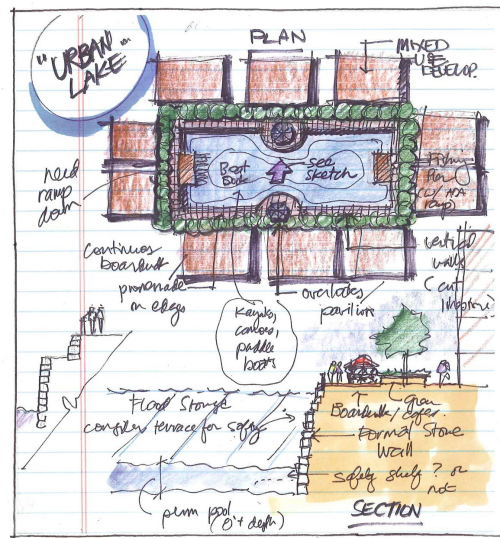 "URBAN"
LAKE
PLAN
MIXED
USE
DEVELOP.
need
ramp
down
Boat
Dock
see
sketch
Fishing
(w/ ADA
ramp)
continuous
boardwalk
promenade
on edges
overlooks
pavilion
vertical
walls
(cut
limestone)
kayaks,
canoes,
paddle
boats
Flood Storage
consider terrace for safety
Boardwalk/
Formal Stone
Wall
safety shelf? or
not
perm pool
(8'+ depth)
SECTION